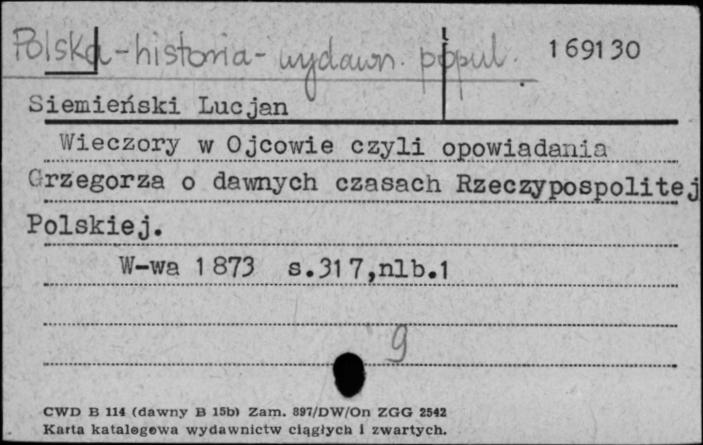 Polska - historia - wydawn. popul. 169130
Siemieński Lucjan
Wieczory w Ojcowie czyli opowiadania
Grzegorza o dawnych czasach Rzeczypospolitej
Polskiej.
W-wa 1873 s.317,nlb.1
9
CWD B 114 (dawny B 15b) Zam. 897/DW/On ZGG 2542
Karta katalogowa wydawnictw ciągłych i zwartych.